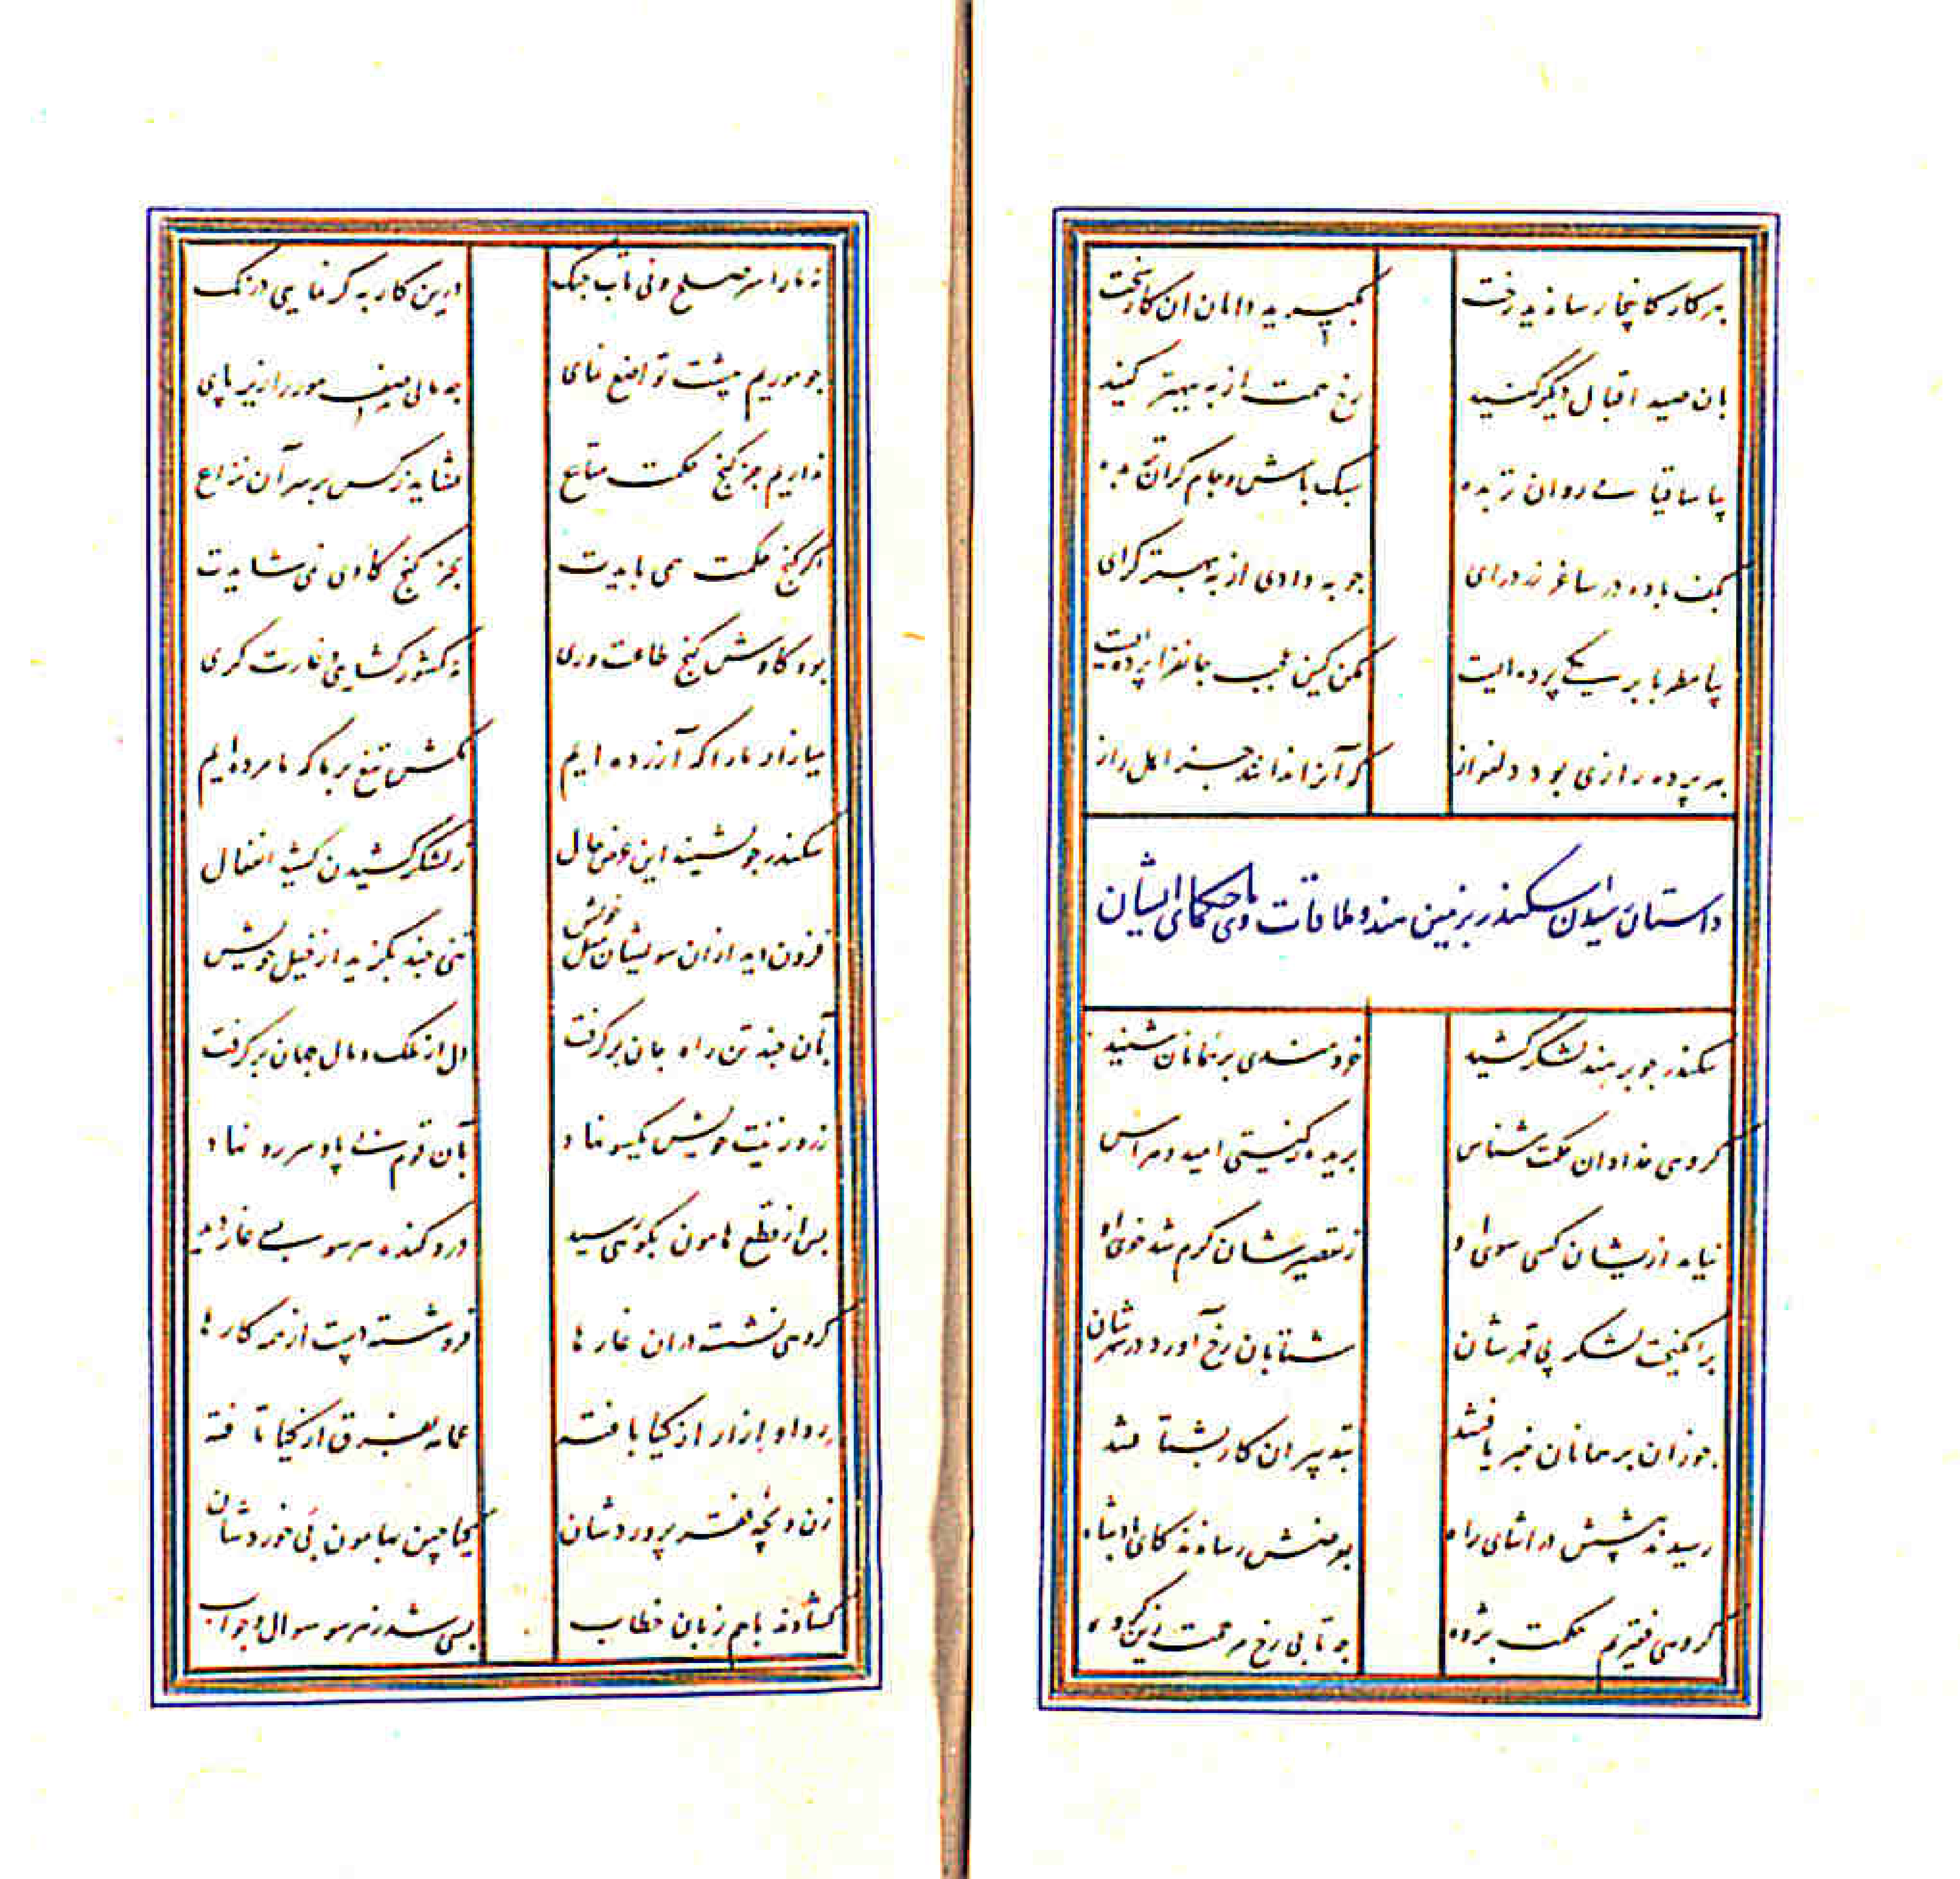 بهر کار کانجا رسانید رخت
بگیرید دامان آن کار سخت
بان صید اقبال دیگر کنید
رخ همت از به ببهتر کنید
بیا ساقیا می روان تر بده
سبک باش و جام گرانتر بده
بکف باده در ساغر زر درای
چو به دادی از به ببهتر گرای
بیا مطربا بر یکی پرده ایست
مکن کین عجب جانفزا پرده ایست
بهر پرده رازی بود دلنواز
که آنرا ندانند جز اهل راز
داستان رسیدن اسکندر بزمین هند و ملاقات وی با حکمای ایشان
سکندر چو بر هند لشکر کشید
خردمندی برهمانان شنید
گروهی خدادان حکمت شناس
بریده ز گیتی امید و هراس
نیامد ازیشان کسی سوی او
ز تقصیرشان گرم شد خوی او
برانگیخت لشکر پی قهرشان
شتابان رخ آورد در شهرشان
چو زان برهمانان خبر یافتند
بتدبیر آن کار بشتافتند
رسیدند پیشش در اثنای راه
بعرضش رساندند کای پادشاه
گروهی فقیریم حکمت پژوه
چه تابی رخ مرحمت زین گروه
نه ما را سر صلح و نی تاب جنگ
درین کار به گر نمایی درنگ
چو موریم پشت تواضع نمای
چه مالی ضعیف مور را زیر پای
نداریم جز گنج حکمت متاع
نشاید ز کس بر سر آن نزاع
اگر گنج حکمت همی بایدت
بجز گنج کاوی نمی شایدت
بود کاوش گنج طاعت وری
نه کشور گشایی و غارت گری
میازار ما را که آزرده ایم
مکش تیغ بر ما که ما مرده ایم
سکندر چو بشنید این عرض حال
ز لشکر کشیدن کشید انفعال
فزون دید از آن سو یشان میل خویش
تنی چند بگزید از خیل خویش
بآن چند تن راه جان برگرفت
دل از ملک و مال جهان برگرفت
زر و زینت خویش یکسو نهاد
بآن قوم بی پا و سر رو نهاد
پس از قطع هامون بکوهی رسید
درو کنده هر سو بسی غار دید
گروهی نشسته در آن غارها
فروشسته دست از همه کارها
ردا و ازار از گیا بافته
عمامه بفرق از گیا تافته
زن و بچه فقر پروردشان
گیا چین بهامون پی خوردشان
گشادند با هم زبان خطاب
بسی شد ز هر سو سوال و جواب